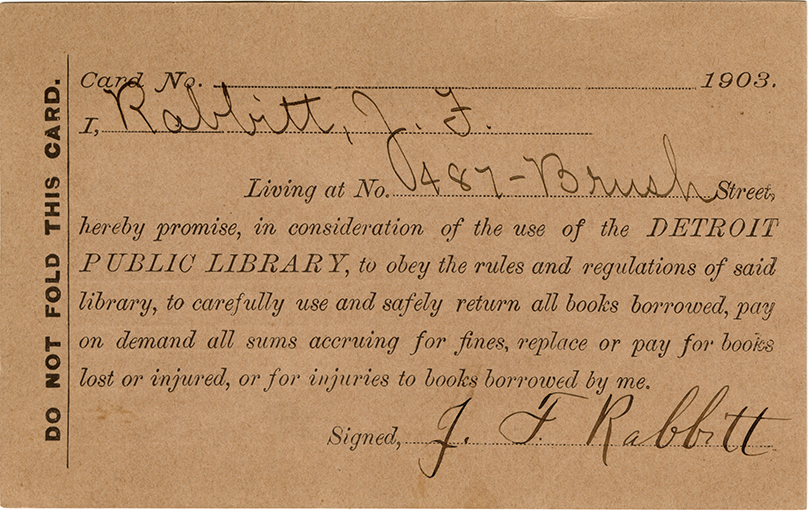 DO NOT FOLD THIS CARD.
Card No. 1903.
I, Rabbitt, J. F.
Living at No. 487 - Brush Street,
hereby promise, in consideration of the use of the DETROIT
PUBLIC LIBRARY, to obey the rules and regulations of said
library, to carefully use and safely return all books borrowed, pay
on demand all sums accruing for fines, replace or pay for books
lost or injured, or for injuries to books borrowed by me.
Signed, J. F. Rabbitt